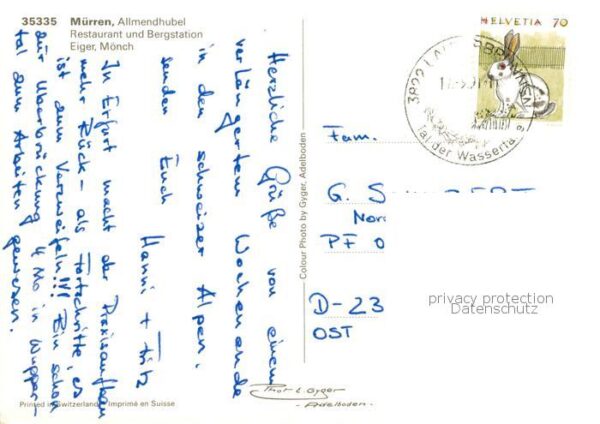 35335 Mürren, Allmendhubel
Restaurant und Bergstation
Eiger, Mönch
HELVETIA 70
3822 LAUTERBRUNNEN
Tal der Wasserfä
Herzliche Grüße von einem
verlängertem Wochenende
in den schweizer Alpen.
senden Euch
Hanni + Fritz
In Erfurt macht der Praxisaufbau
mehr Rück- als Fortschritte, es
ist zum Verzweifeln!!! Bin schon
zur Überbrückung 4 Mo in Wupper-
tal zum Arbeiten gewesen.
Colour Photo by Gyger, Adelboden
Fam.
G. S
Nor
PF 0
D-23
OST
privacy protection
Datenschutz
Printed in Switzerland - Imprimé en Suisse
Phot. E. Gyger
- Adelboden -